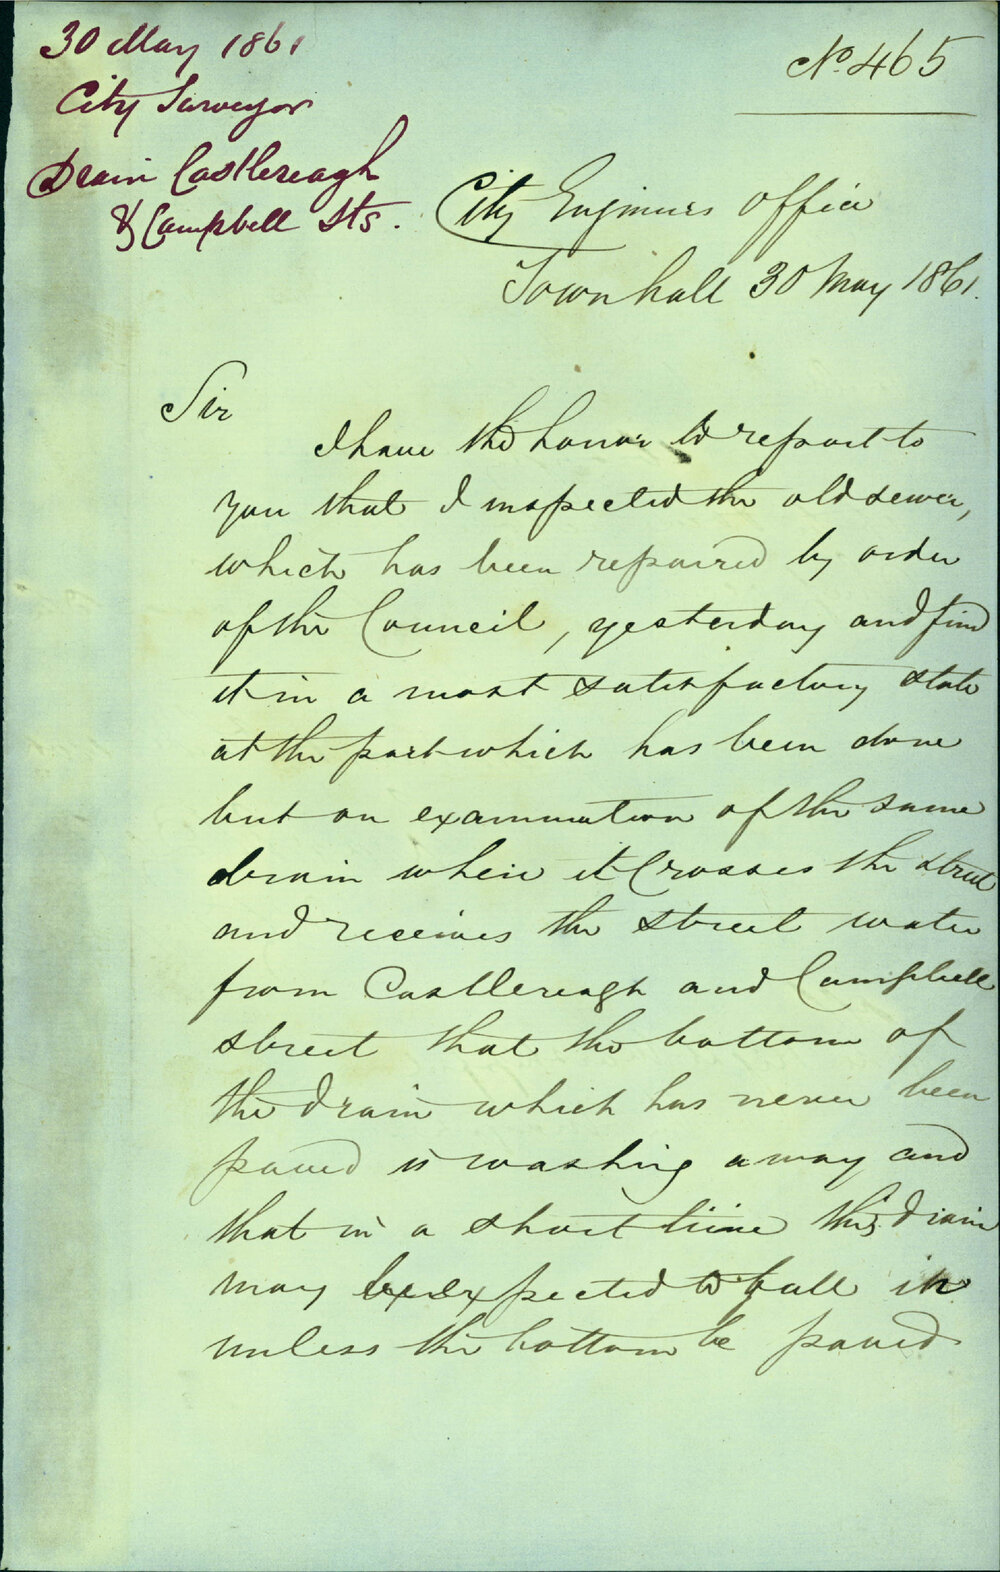 30 May 1861
City Surveyor
Drain Castlereagh
& Campbell Sts.
No. 465
City Engineers Office
Town hall 30 May 1861.
Sir
I have the honor to report to
you that I inspected the old sewer,
which has been repaired by order
of the Council, yesterday and find
it in a most satisfactory state
at the part which has been done
but on examination of the same
drain where it Crosses the street
and receives the street water
from Castlereagh and Campbell
street that the bottom of
the drain which has never been
paved is washing away and
that in a short time this drain
may be expected to fall in
unless the bottom be paved